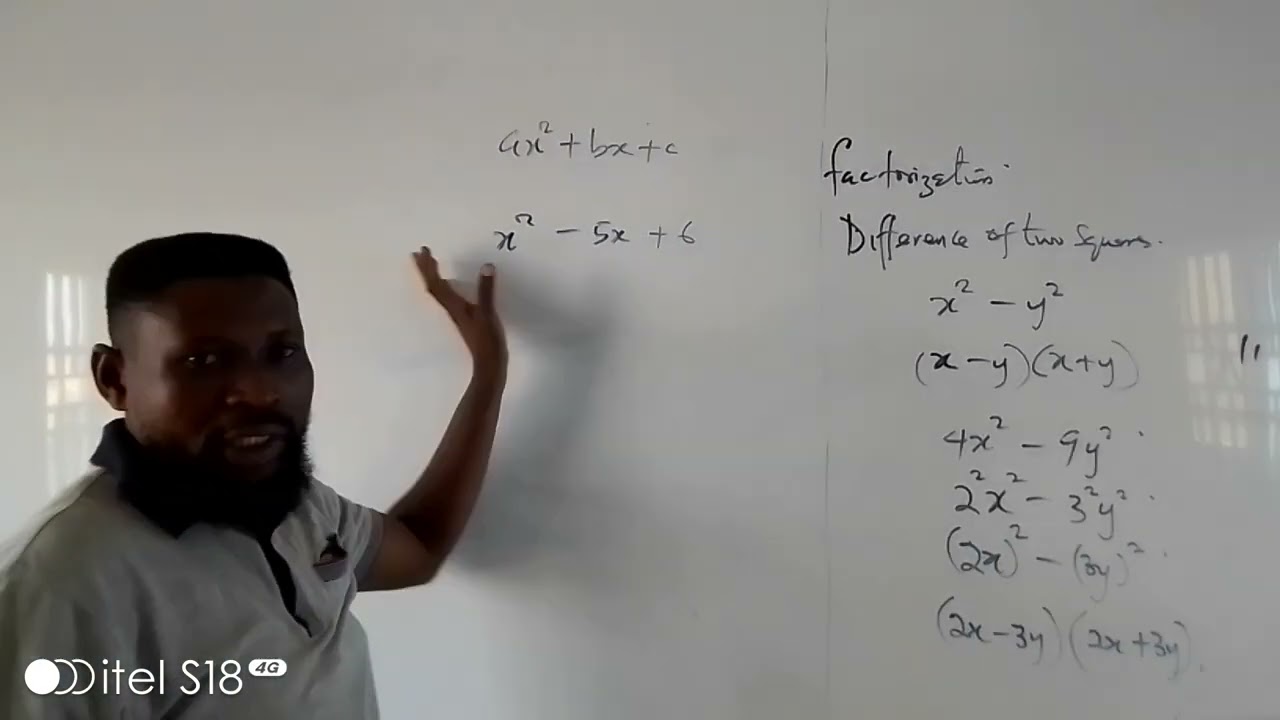 ax² + bx + c
x² - 5x + 6
factorization.
Difference of two Squares.
x² - y²
(x - y)(x + y)
4x² - 9y²
2²x² - 3²y²
(2x)² - (3y)²
(2x - 3y)(2x + 3y)
itel S18 4G